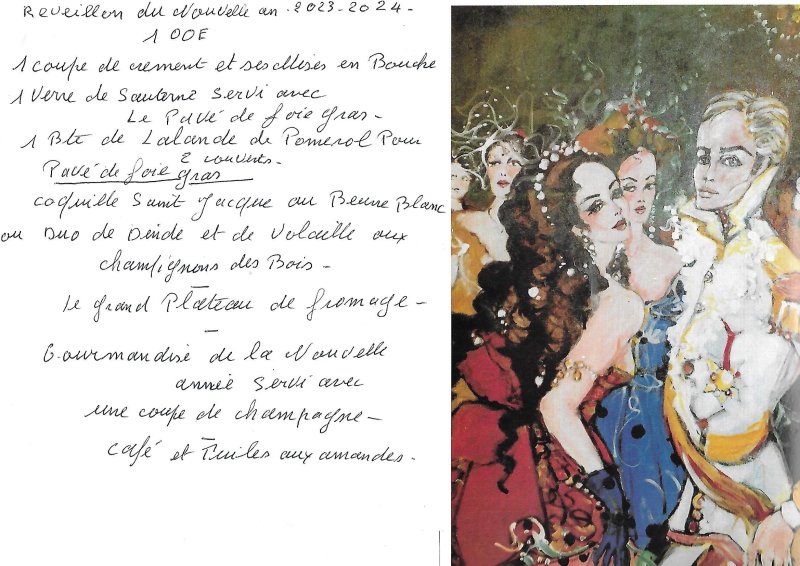 Reveillon du Nouvelle an .2023-2024-
100E
1 coupe de crement et ses Mises en Bouche
1 Verre de Sauterne Servi avec
Le Pavé de foie gras-
1 Bte de Lalande de Pomerol Pour
2 couverts-
Pavé de foie gras
coquille Saint Jacque au Beurre Blanc
ou Duo de Dinde et de Volaille aux
champignons des Bois-
Le grand Plateau de fromage-
Gourmandise de la Nouvelle
année servi avec
une coupe de champagne-
café et Tuiles aux amandes.